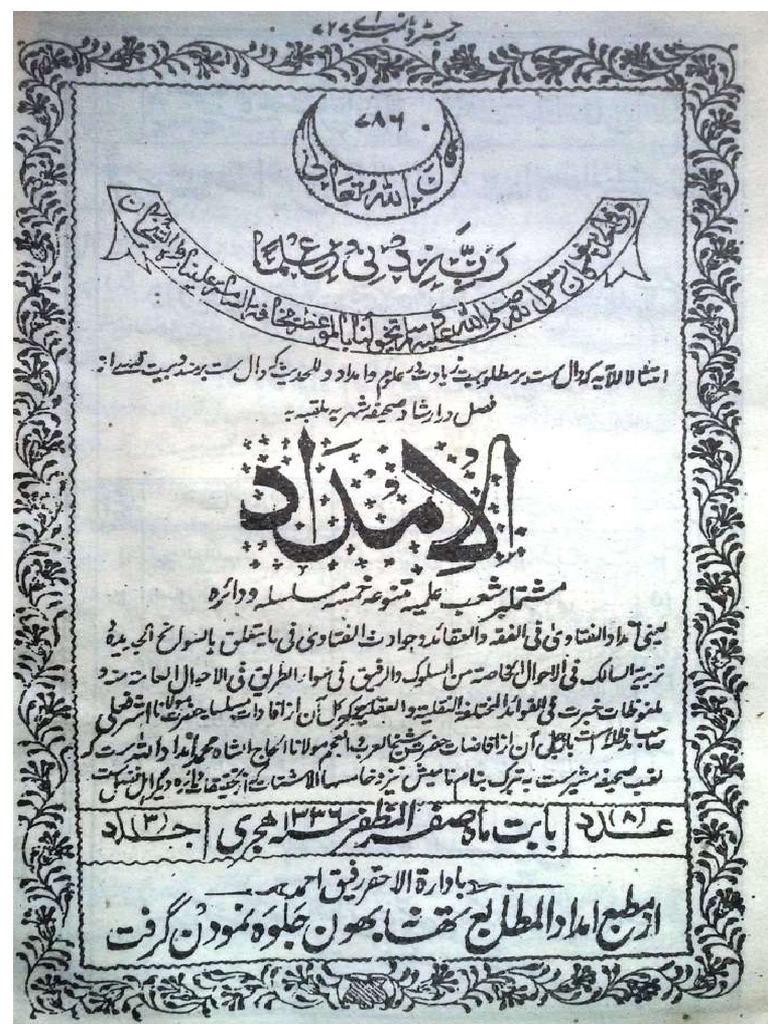 رجسٹرڈ نمبر اے ۷۲۷
۷۸۶
قال اللہ تعالی
رَبِّ زِدْنِیْ عِلْمًا
کان رسول اللہ صلے اللہ علیہ وسلم یتخولنا بالموعظۃ مخافۃ السآمۃ علینا
امتثالا للآیہ کہ دال ست بر مطلوبیت زیادت فی علوم و امداد و للحدیث کہ دال ست بر
فصل در ارشاد صحیفہ شہریہ ملقبہ بہ
الامداد
مشتمل بر شعب علمیہ متنوعہ خمسہ سلسلہ و دائرہ
یعنی امداد الفتاوی فی الفقہ والعقائد و حوادث الفتاوی فی ما یتعلق بالسوانح الجدیدۃ
تربیۃ السالک فی الاحوال الخاصۃ من السلوک والرفیق فی سواء الطریق فی الاحوال العامۃ منہ و
ملفوظات خبرت فی الفوائد المختلفۃ النقلیۃ والعقلیۃ کہ کل آن از افادات سلسلہ حضرت مولانا اشرف علی
صاحب مدظلہ است باز کل آن از افاضات حضرت شیخ العرب والعجم مولانا الحاج الشاہ محمد امداد اللہ ست کہ
لقب صحیفہ مشیر ست بہ تبرک بنام نامیش نیز و خامسہا
عدد (۸) بابت ماہ صفر المظفر سنہ ۱۳۳۶ ہجری جلد (۳)
بادارۃ الاحقر رفیق احمد
از مطبع امداد المطابع تھانا بھون جلوہ نمودن گرفت